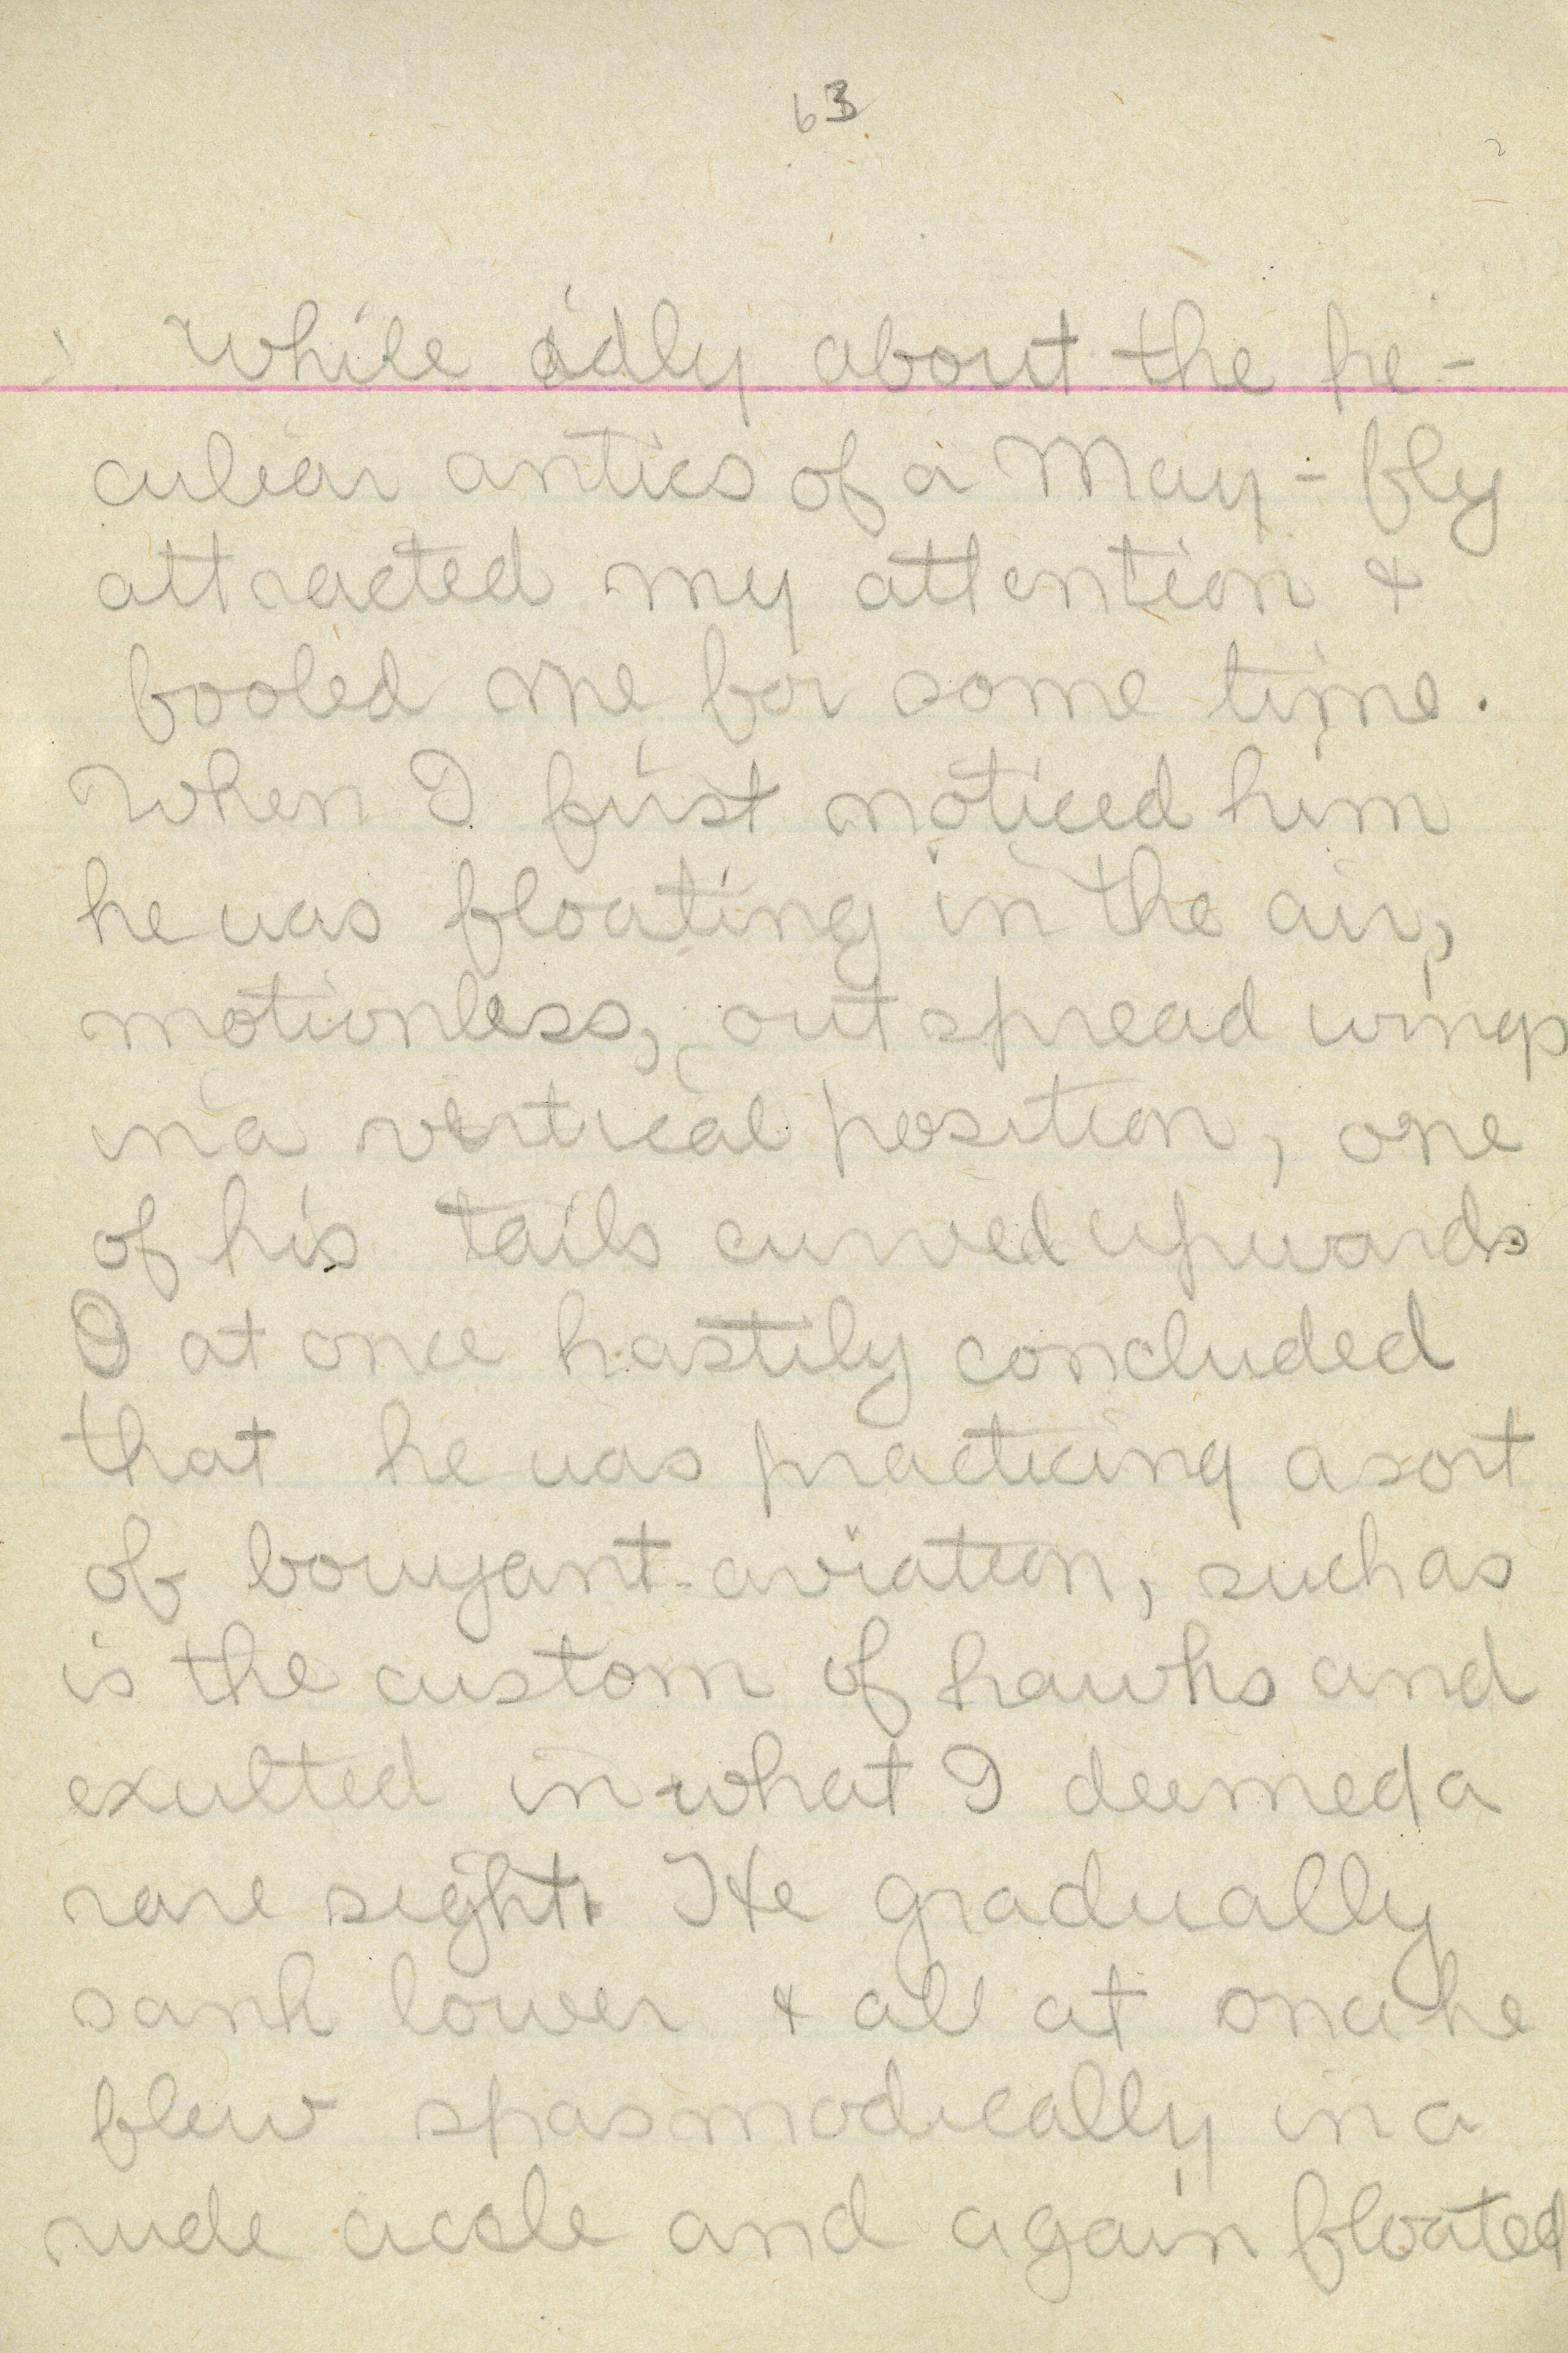 63
While idly about the pe-
culiar antics of a May-fly
attracted my attention &
fooled me for some time.
When I first noticed him
he was floating in the air,
motionless, outspread wings
in a vertical position, one
of his tails curved upwards
I at once hastily concluded
that he was practicing a sort
of bouyant-aviation, such as
is the custom of hawks and
exulted in what I deemed a
rare sight. He gradually
sank lower & all at once he
flew spasmodically in a
rude circle and again floated